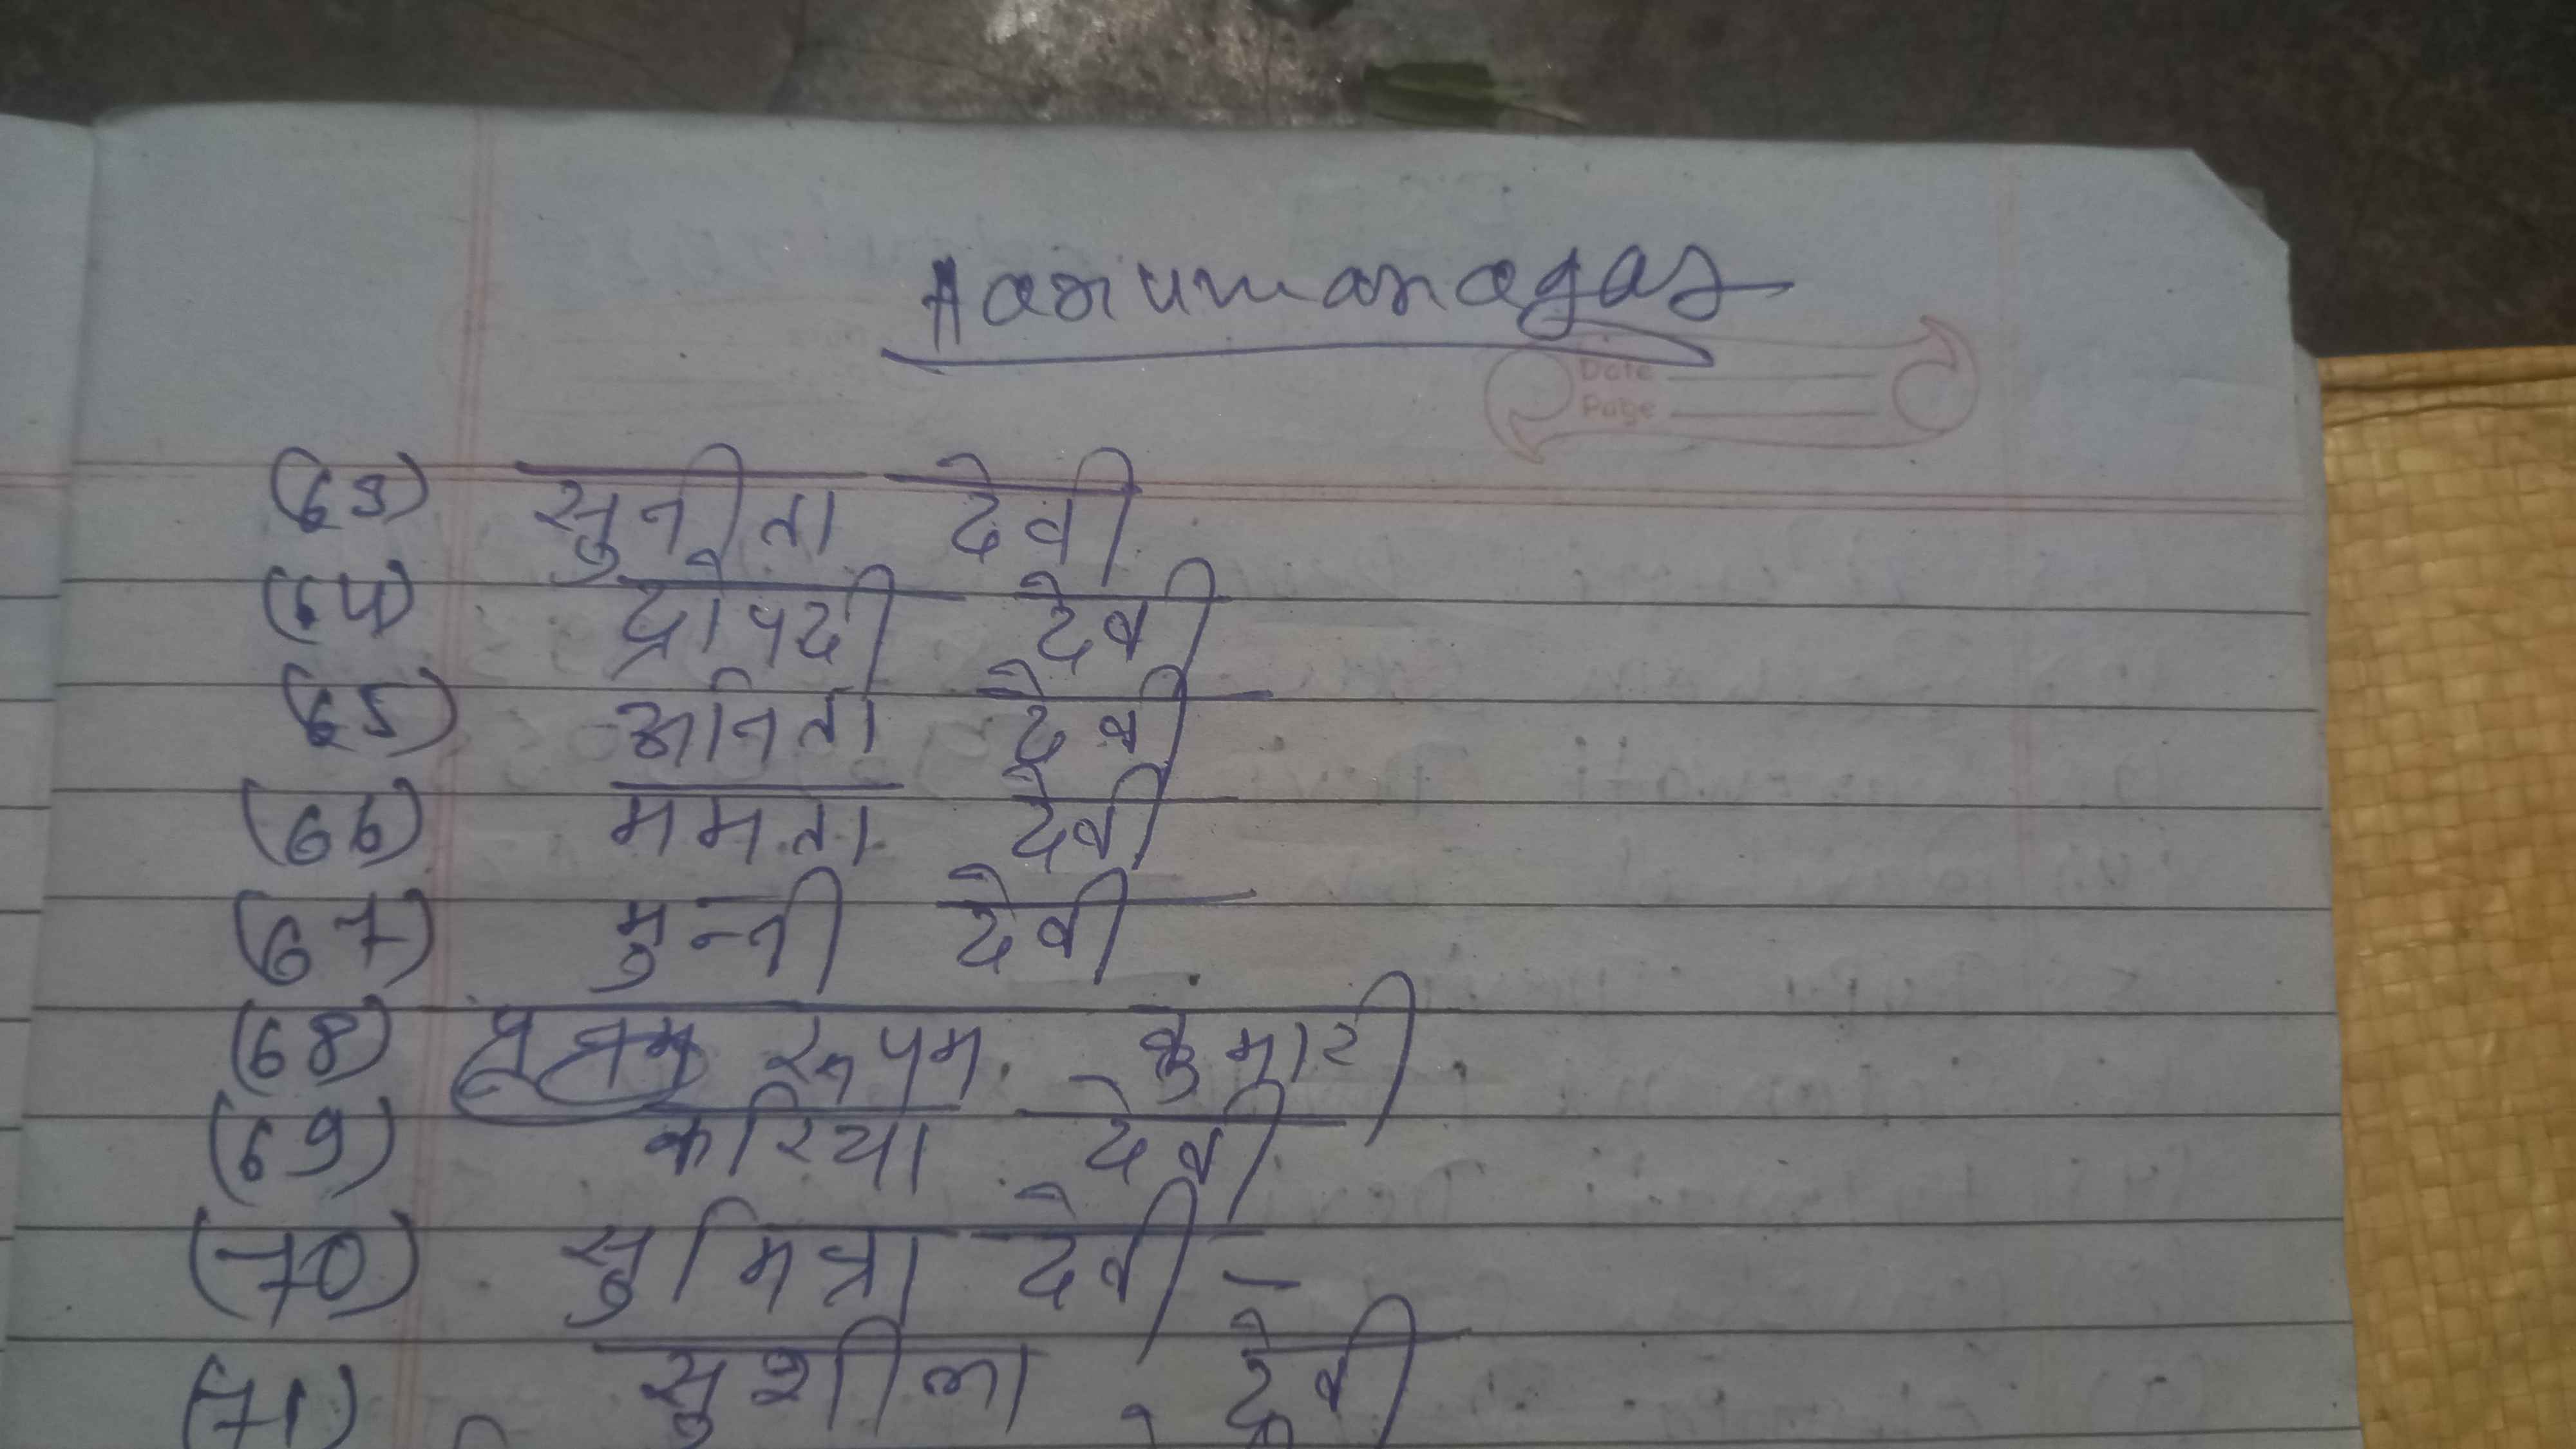 Hanumanagar
Date
Page
(63) सुनीता देवी
(64) द्रोपदी देवी
(65) अनिता देवी
(66) ममता देवी
(67) मुन्नी देवी
(68) रूपम कुमारी
(69) करिया देवी
(70) सुमित्रा देवी -
(71) सुशीला देवी